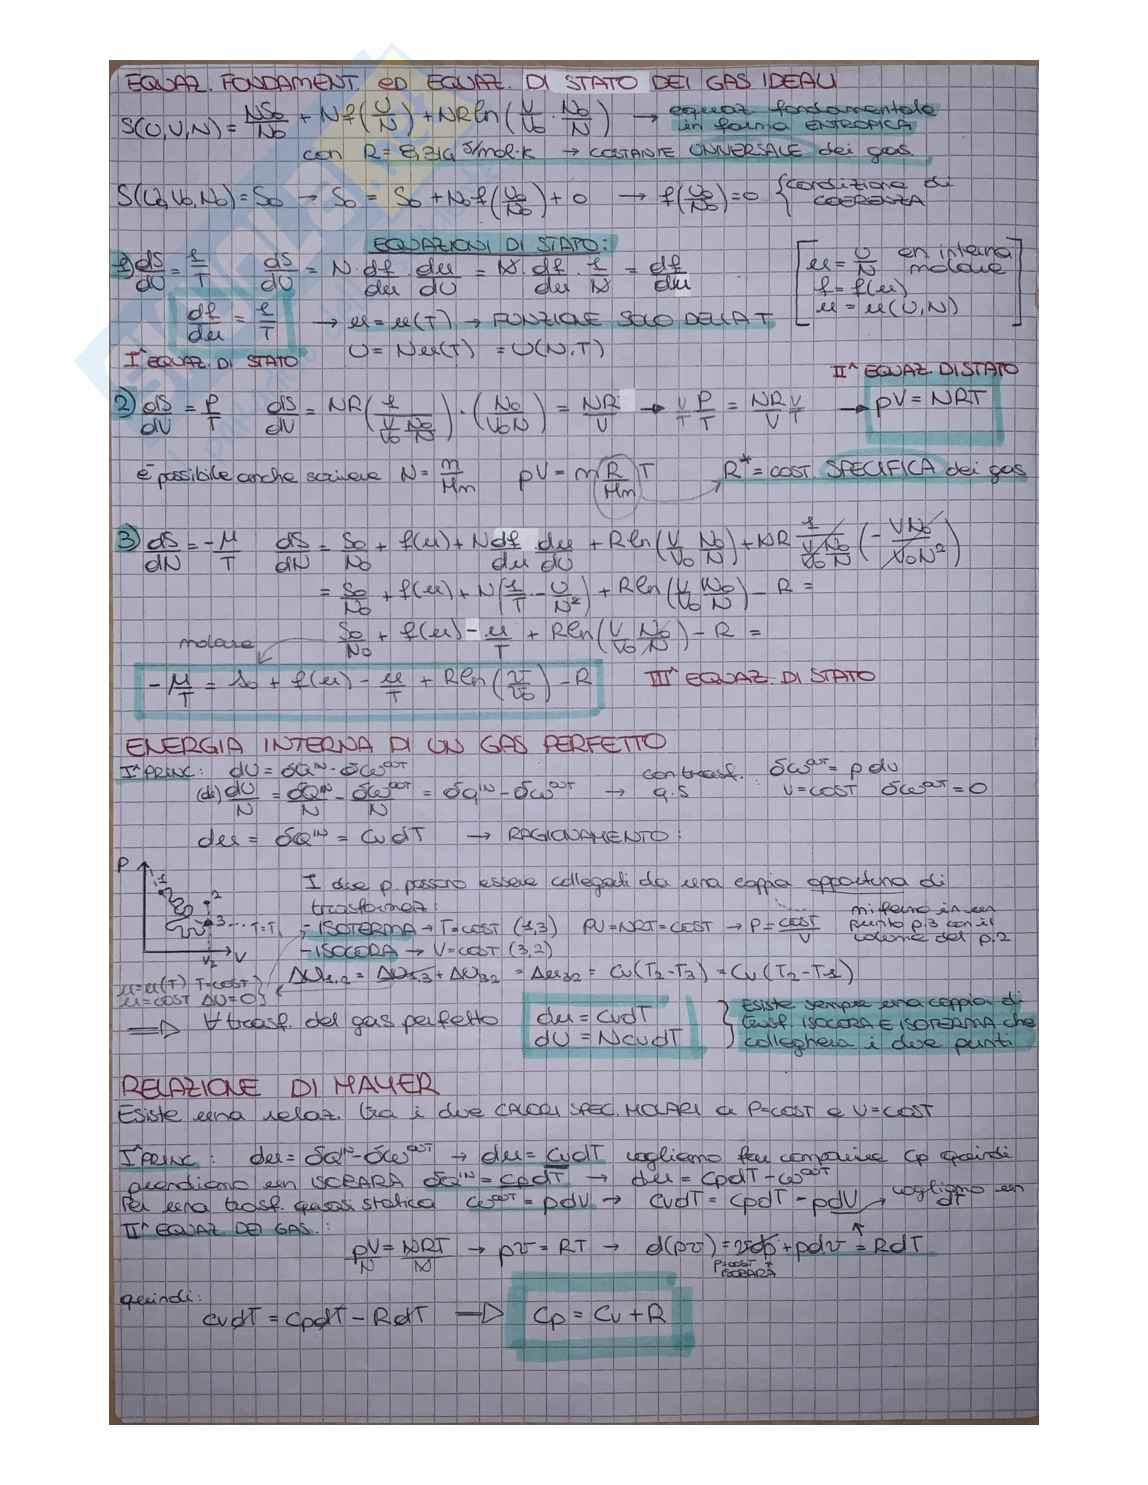 EQUAZ. FONDAMENT. ED EQUAZ. DI STATO DEI GAS IDEALI
S(U,V,N) = NS₀/N₀ + Nf(U/N) + NRln(V/V₀ · N₀/N) → equaz fondamentale in forma ENTROPICA
con R = 8,314 J/mol·K → COSTANTE UNIVERSALE dei gas
S(U₀,V₀,N₀) = S₀ → S₀ = S₀ + N₀f(U₀/N₀) + 0 → f(U₀/N₀) = 0 {condizione di COERENZA
EQUAZIONI DI STATO:
1) dS/dU = 1/T dS/dU = N · df/du · du/dU = N · df/du · 1/N = df/du [u = U/N en interna molare
f = f(u)
u = u(U,N)]
df/du = 1/T → u = u(T) → FUNZIONE SOLO DELLA T
I^ EQUAZ. DI STATO U = Nu(T) = U(N,T)
II^ EQUAZ. DI STATO
2) dS/dV = P/T dS/dV = NR(1/(V/V₀ N₀/N)) · (N₀/V₀N) = NR/V → V/T P/T = NR/V V/T → pV = NRT
è possibile anche scrivere N = m/Mm pV = m(R/Mm)T R* = COST. SPECIFICA dei gas
3) dS/dN = -μ/T dS/dN = S₀/N₀ + f(u) + N df/du du/dU + Rln(V/V₀ N₀/N) + NR 1/(V/V₀ N₀/N) (-VN₀/V₀N²)
= S₀/N₀ + f(u) + N(1/T - U/N²) + Rln(V/V₀ N₀/N) - R =
molare S₀/N₀ + f(u) - u/T + Rln(V/V₀ N₀/N) - R =
-μ/T = s₀ + f(u) - u/T + Rln(v/v₀) - R III^ EQUAZ. DI STATO
ENERGIA INTERNA DI UN GAS PERFETTO
I^ PRINC: dU = δQ^IN - δW^OUT
(du) dU/N = δQ^IN/N - δW^OUT/N = δq^IN - δw^OUT → con trasf. q.s δw^OUT = p dv
v = COST δw^OUT = 0
du = δQ^IN = cv dT → RAGIONAMENTO:
P 1 2 3 T=T₁ V₂ V
I due p. possono essere collegati da una coppia opportuna di
trasformaz:
- ISOTERMA → T=COST (1,3) PV=NRT=COST → P = COST/V mi fermo in un punto p.3 con il volume del p.2
- ISOCORA → V=COST (3,2)
u=u(T) T=COST
u=COST ΔU=0
ΔU1,2 = ΔU1,3 + ΔU3,2 = Δu3,2 = Cv(T2-T3) = Cv(T2-T1)
⇒ ∀ trasf. del gas perfetto du = cvdT
dU = NcvdT } Esiste sempre una coppia di
trasf. ISOCORA E ISOTERMA che
collegherà i due punti
RELAZIONE DI MAYER
Esiste una relaz. tra i due CALORI SPEC. MOLARI a P=COST e V=COST
I^ PRINC: du = δQ^IN - δW^OUT → du = cvdT vogliamo far comparire cp quindi
prendiamo un ISOBARA δQ^IN = cpdT → du = cpdT - w^OUT
Per una trasf. quasi statica w^OUT = pdV → cvdT = cpdT - pdV → vogliamo un dT
II^ EQUAZ DEI GAS.:
pV/N = NRT/N → pv = RT → d(pv) = vdp + pdv = RdT
P=COST x ISOBARA
quindi:
cvdT = cpdT - RdT ⇒ Cp = Cv + R